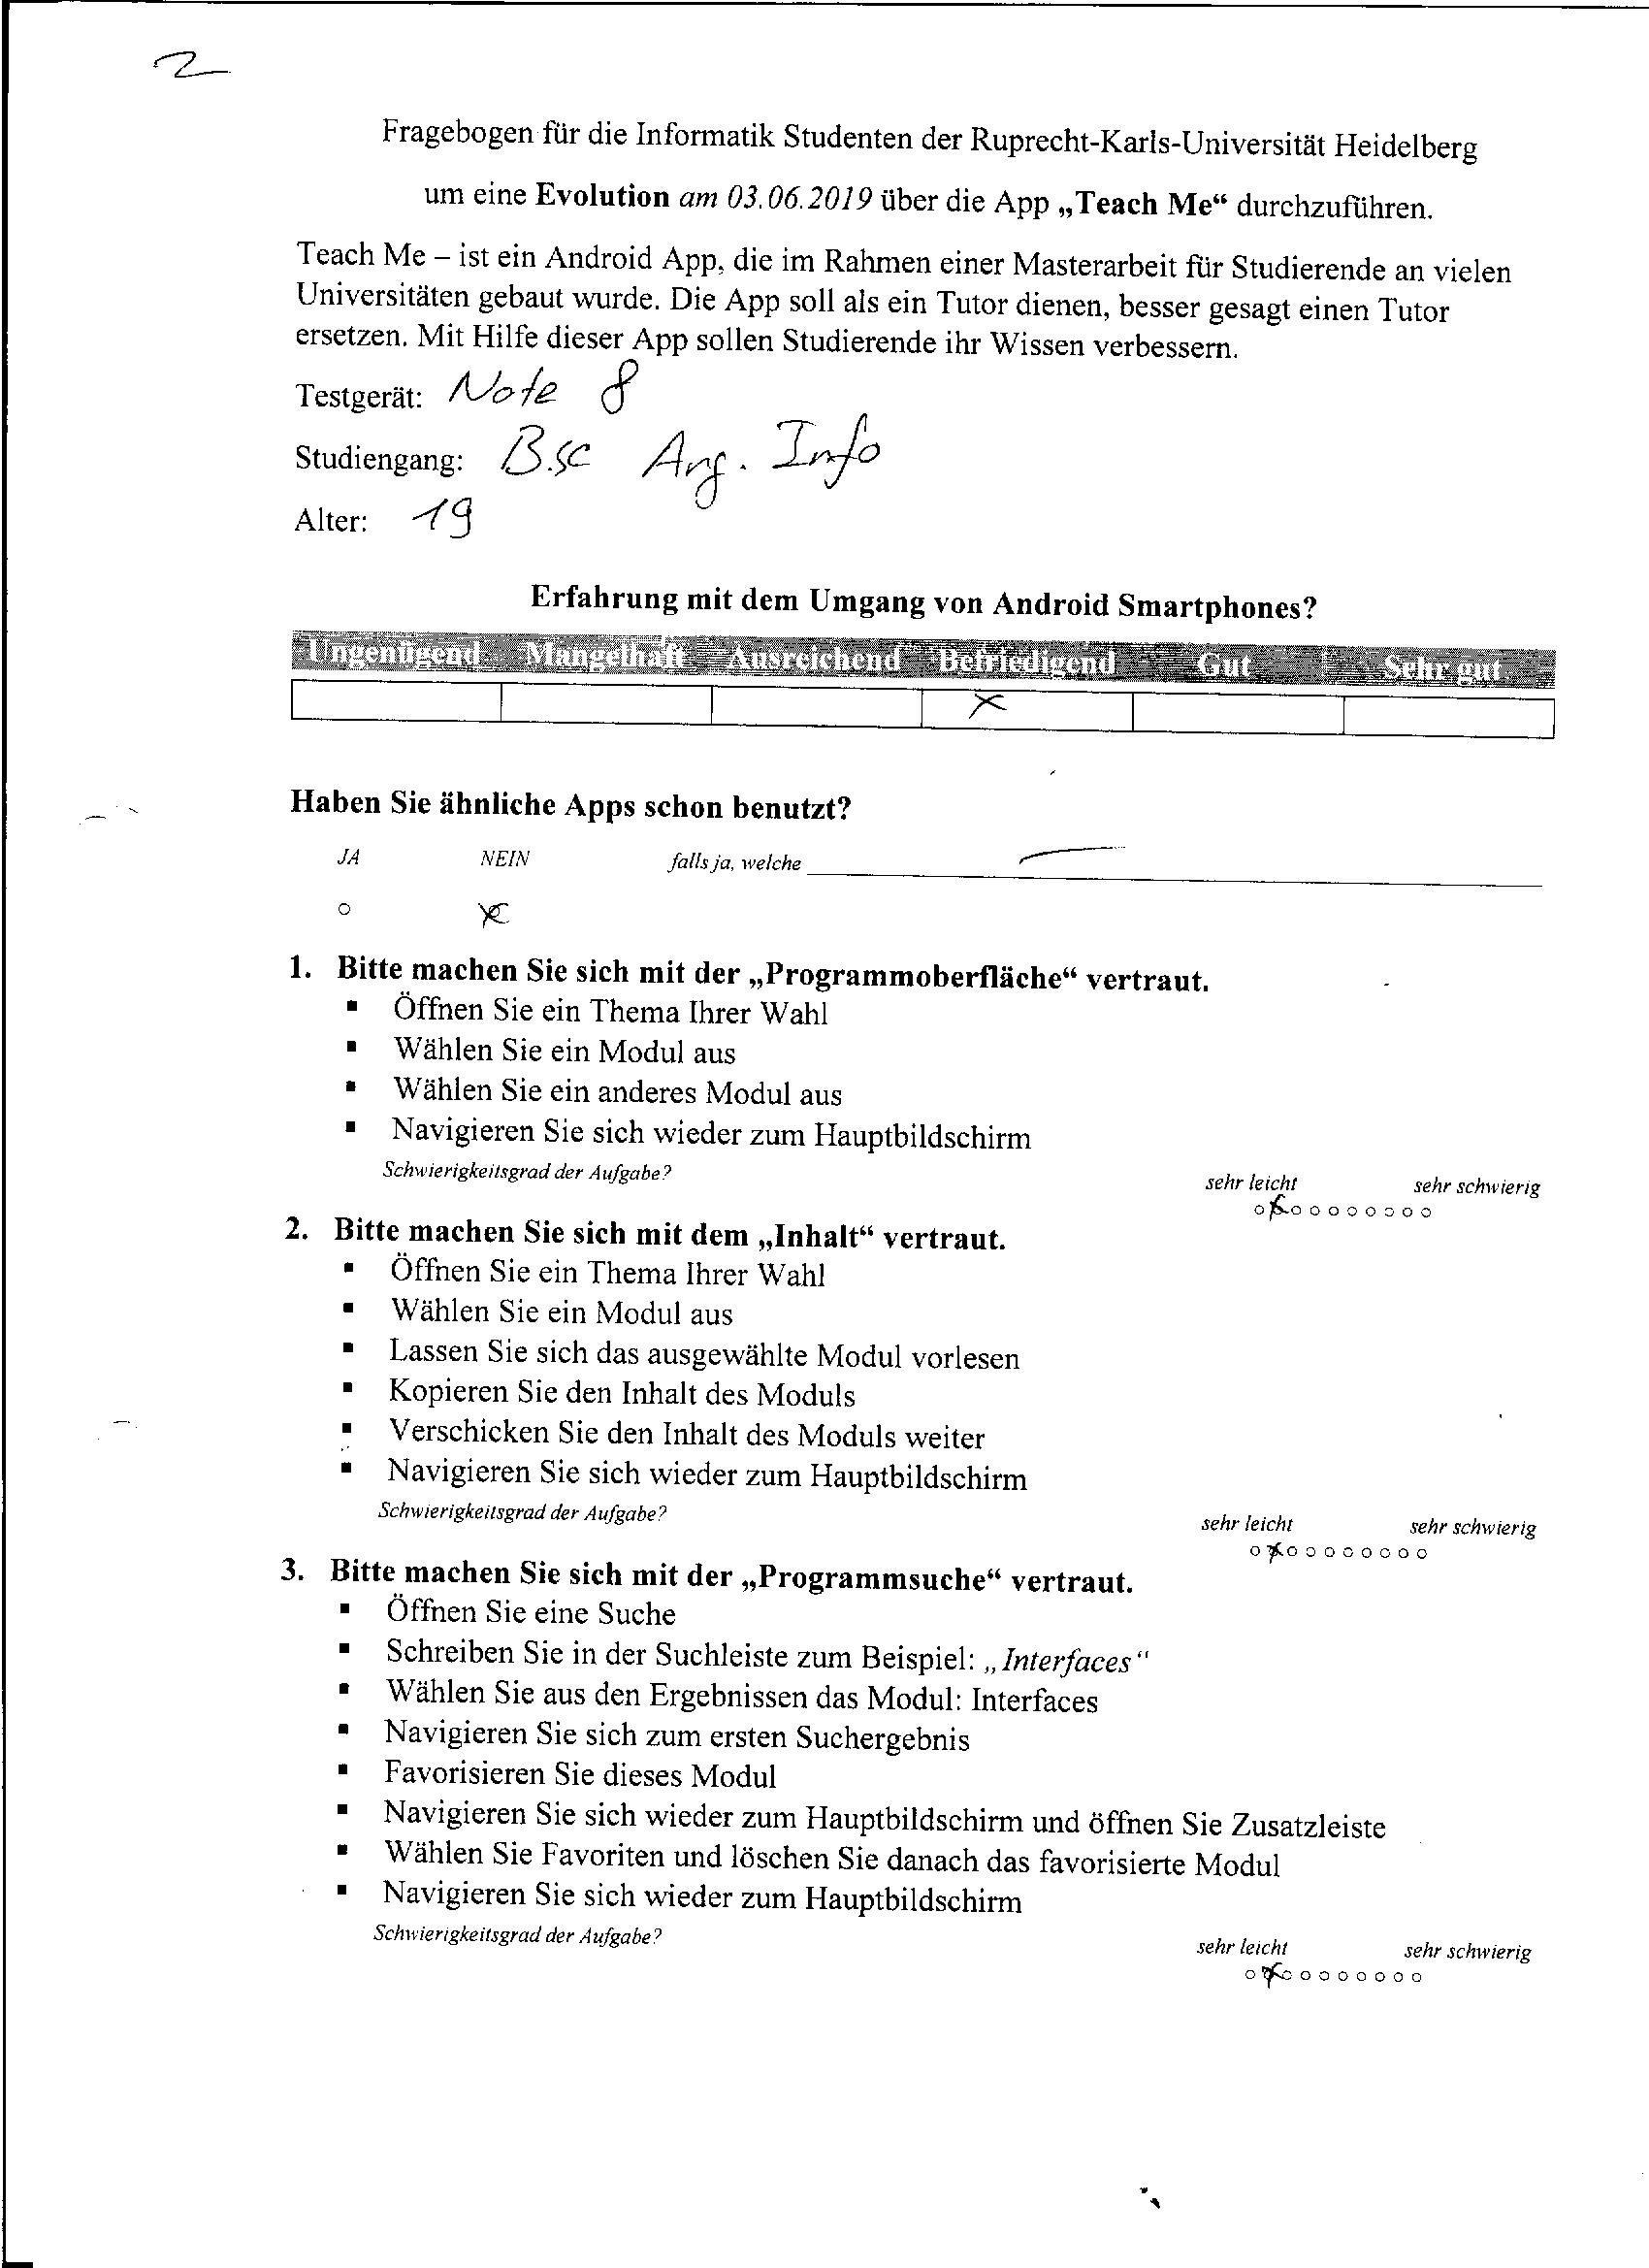 2
Fragebogen für die Informatik Studenten der Ruprecht-Karls-Universität Heidelberg
um eine Evolution am 03.06.2019 über die App „Teach Me“ durchzuführen.
Teach Me – ist ein Android App, die im Rahmen einer Masterarbeit für Studierende an vielen
Universitäten gebaut wurde. Die App soll als ein Tutor dienen, besser gesagt einen Tutor
ersetzen. Mit Hilfe dieser App sollen Studierende ihr Wissen verbessern.
Testgerät: Note 8
Studiengang: B.sc Ang. Info
Alter: 19
Erfahrung mit dem Umgang von Android Smartphones?
Ungenügend Mangelhaft Ausreichend Befriedigend Gut Sehr gut
Haben Sie ähnliche Apps schon benutzt?
JA NEIN falls ja, welche
1. Bitte machen Sie sich mit der „Programmoberfläche“ vertraut.
▪ Öffnen Sie ein Thema Ihrer Wahl
▪ Wählen Sie ein Modul aus
▪ Wählen Sie ein anderes Modul aus
▪ Navigieren Sie sich wieder zum Hauptbildschirm
Schwierigkeitsgrad der Aufgabe? sehr leicht sehr schwierig
2. Bitte machen Sie sich mit dem „Inhalt“ vertraut.
▪ Öffnen Sie ein Thema Ihrer Wahl
▪ Wählen Sie ein Modul aus
▪ Lassen Sie sich das ausgewählte Modul vorlesen
▪ Kopieren Sie den Inhalt des Moduls
▪ Verschicken Sie den Inhalt des Moduls weiter
▪ Navigieren Sie sich wieder zum Hauptbildschirm
Schwierigkeitsgrad der Aufgabe? sehr leicht sehr schwierig
3. Bitte machen Sie sich mit der „Programmsuche“ vertraut.
▪ Öffnen Sie eine Suche
▪ Schreiben Sie in der Suchleiste zum Beispiel: „Interfaces“
▪ Wählen Sie aus den Ergebnissen das Modul: Interfaces
▪ Navigieren Sie sich zum ersten Suchergebnis
▪ Favorisieren Sie dieses Modul
▪ Navigieren Sie sich wieder zum Hauptbildschirm und öffnen Sie Zusatzleiste
▪ Wählen Sie Favoriten und löschen Sie danach das favorisierte Modul
▪ Navigieren Sie sich wieder zum Hauptbildschirm
Schwierigkeitsgrad der Aufgabe? sehr leicht sehr schwierig